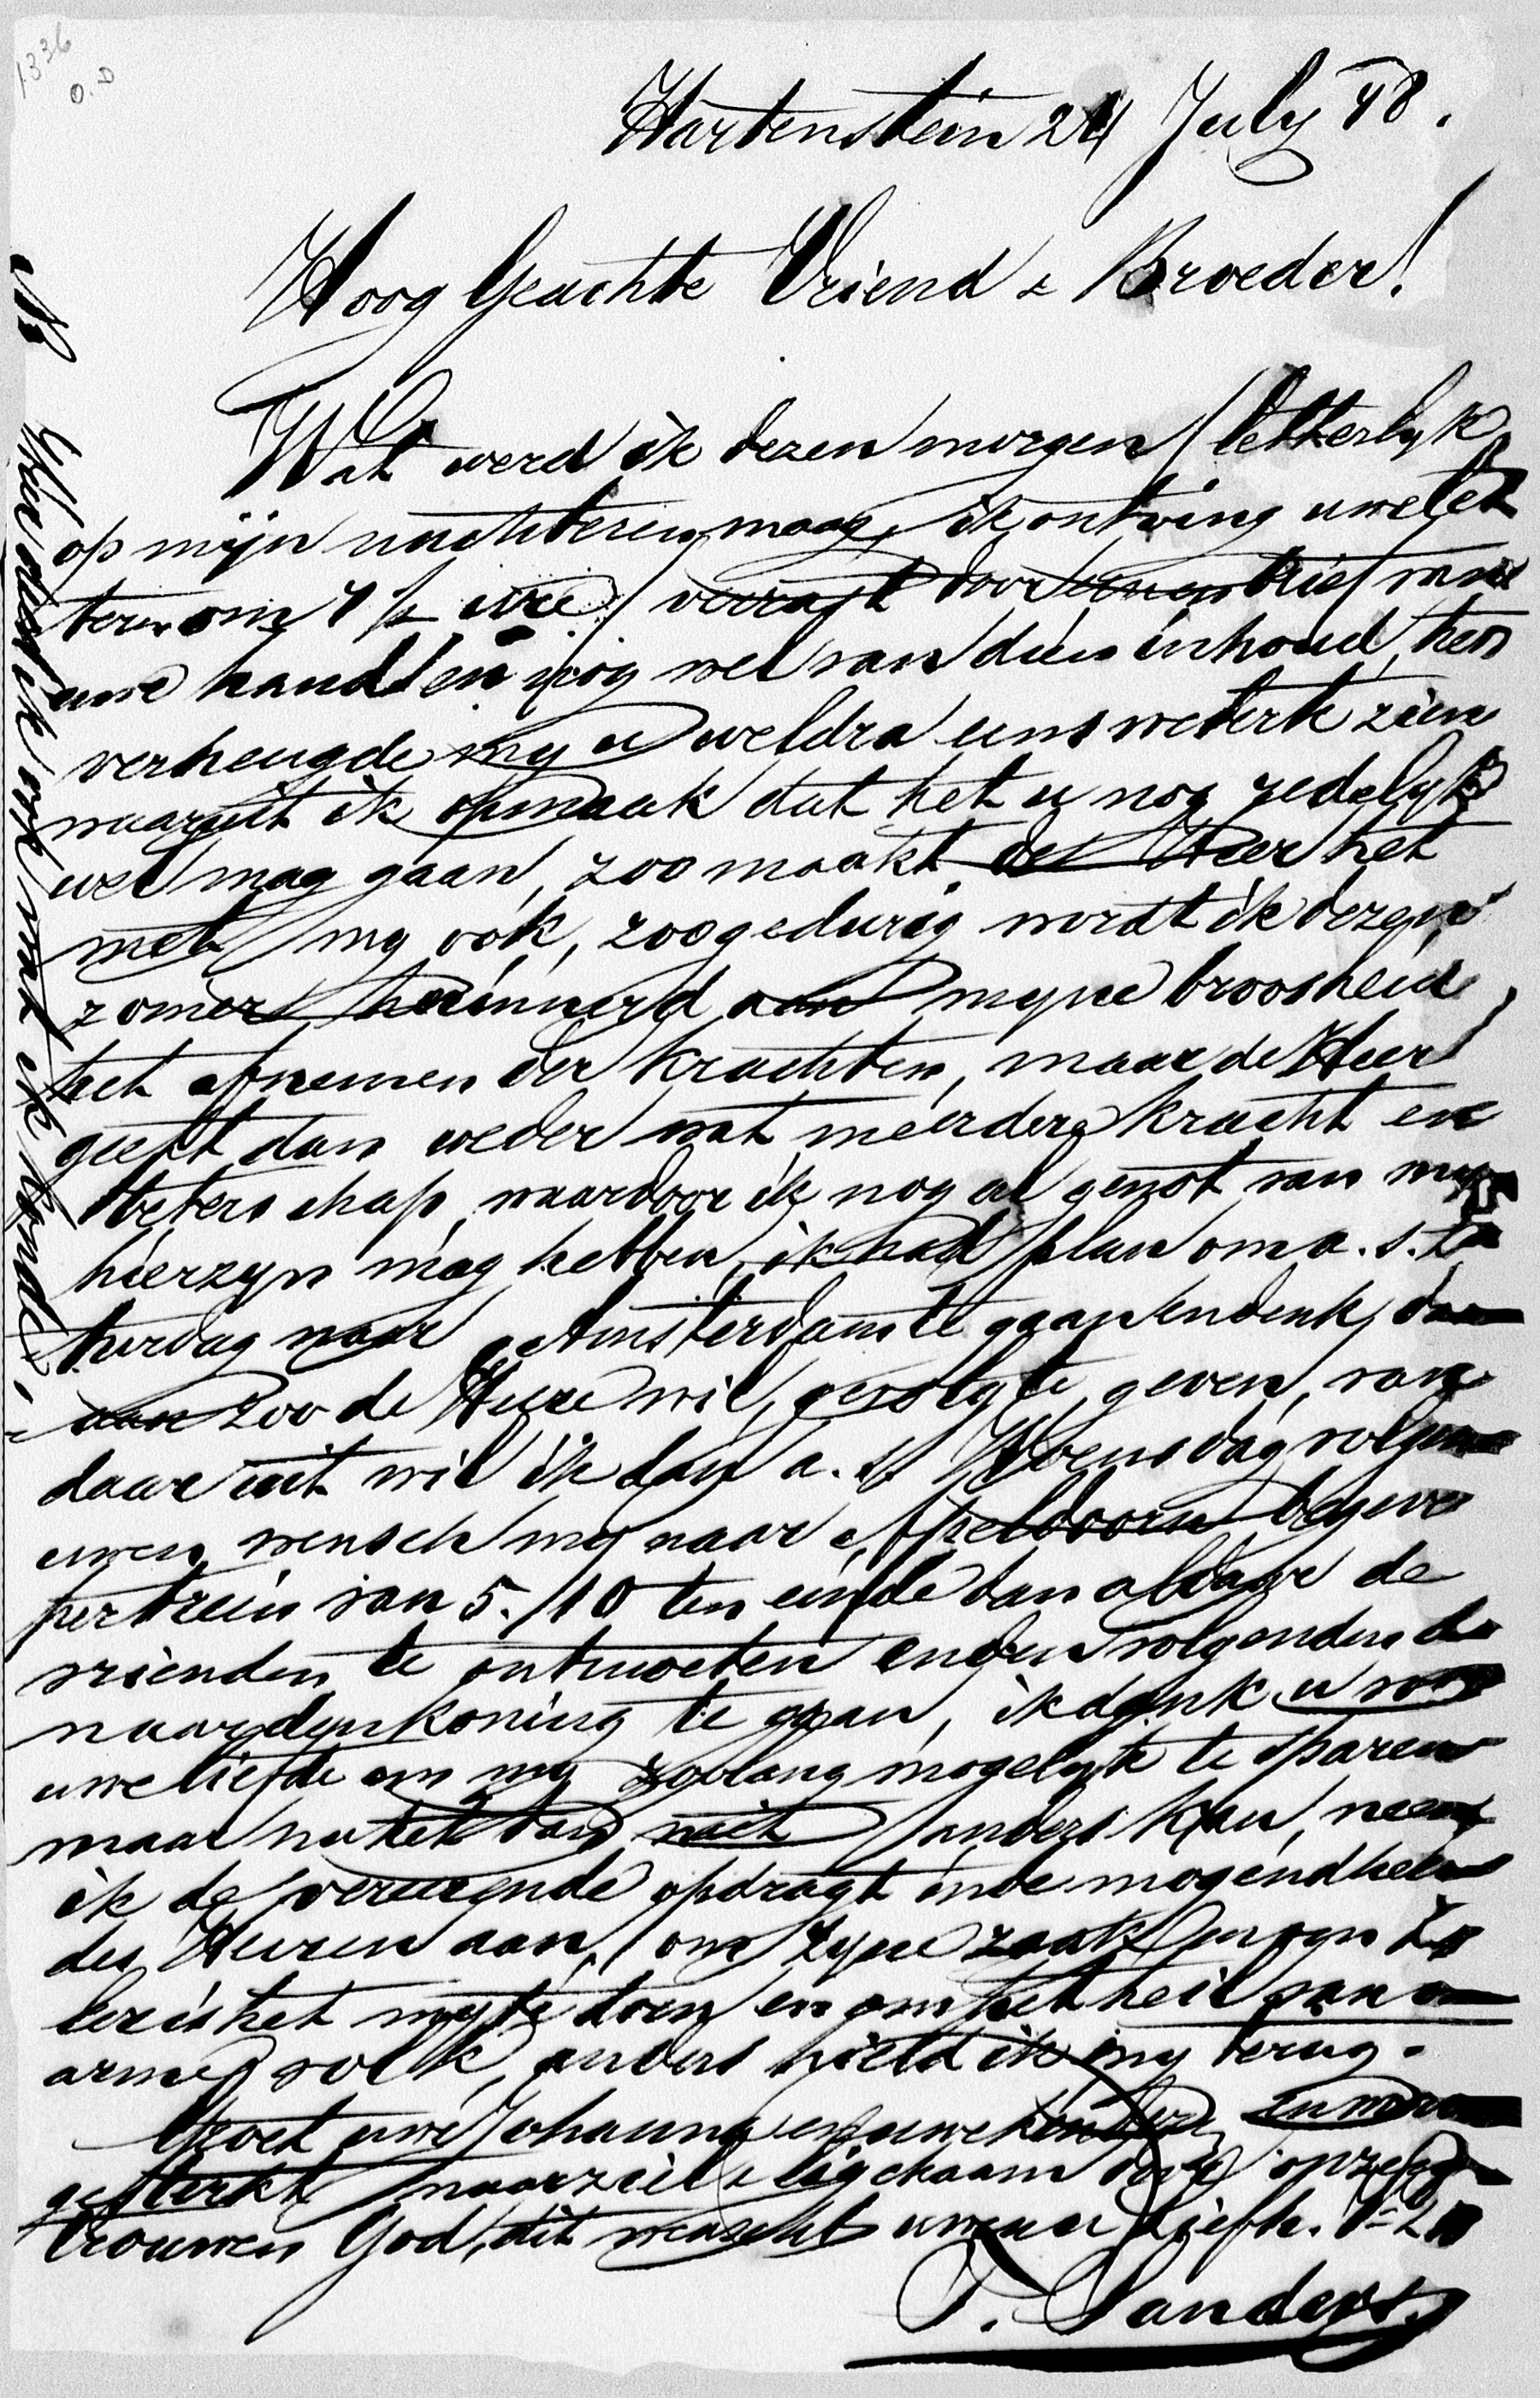 1336
O.D
Hartenstein 24 July 48.
Hoog Geachte Vriend & Broeder!
Wat werd ik dezen morgen (letterlyk
op mijn nuchteren maag, ik ontving uwe let
teren om 7½ ure) verrast door eenen brief van
uwe hand! en nog wel van dien inhoud, het
verheugde my u weldra eens weder te zien
waaruit ik opmaak dat het u nog redelyk
wel mag gaan, zoo maakt de Heer het
met my ook, zoo gedurig wordt ik dezen
zomer herinnerd aan myne broosheid,
het afnemen der krachten, maar de Heer
geeft dan weder wat meerdere kracht en
beterschap, waardoor ik nog al genot van myn
hierzyn mag hebben, ik had plan om a.s. za
turdag naar Amsterdam te gaan en denk daar
aan zoo de Heere wil, gevolg te geven, van
daar uit wil ik dan a.s. Woensdag volgens
uwen wensch my naar Apeldoorn begeven
per trein van 5.10 ten einde dan aldaar de
vrienden te ontmoeten en den volgenden
naar den koning te gaan, ik dank u voor
uwe liefde om my zoolang mogelyk te sparen
maar nu het dan niet anders kan, neem
ik de vereerende opdragt in de mogendheden
des Heeren aan, om zyne zaak en om
is het my te doen en om het heil van
arme volk, anders hield ik my terug.
Groet uwe Johanna en uwe kinderen en
gesterkt naar ziel & ligchaam door onzen
trouwen God, dit wenscht uwen u Liefh.
P. Sanders
NB Hier doet ik ook wat ik konde.